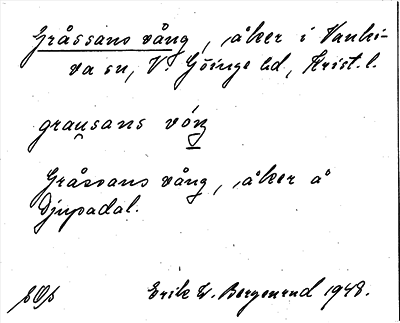 Gråssans vång, åker i Vanki-
va sn, V. Göinge hd, Krist. l.
grau̯sans vóŋ
Gråssans vång, åker å
Djupadal.
Erik W. Bergenrud 1948.